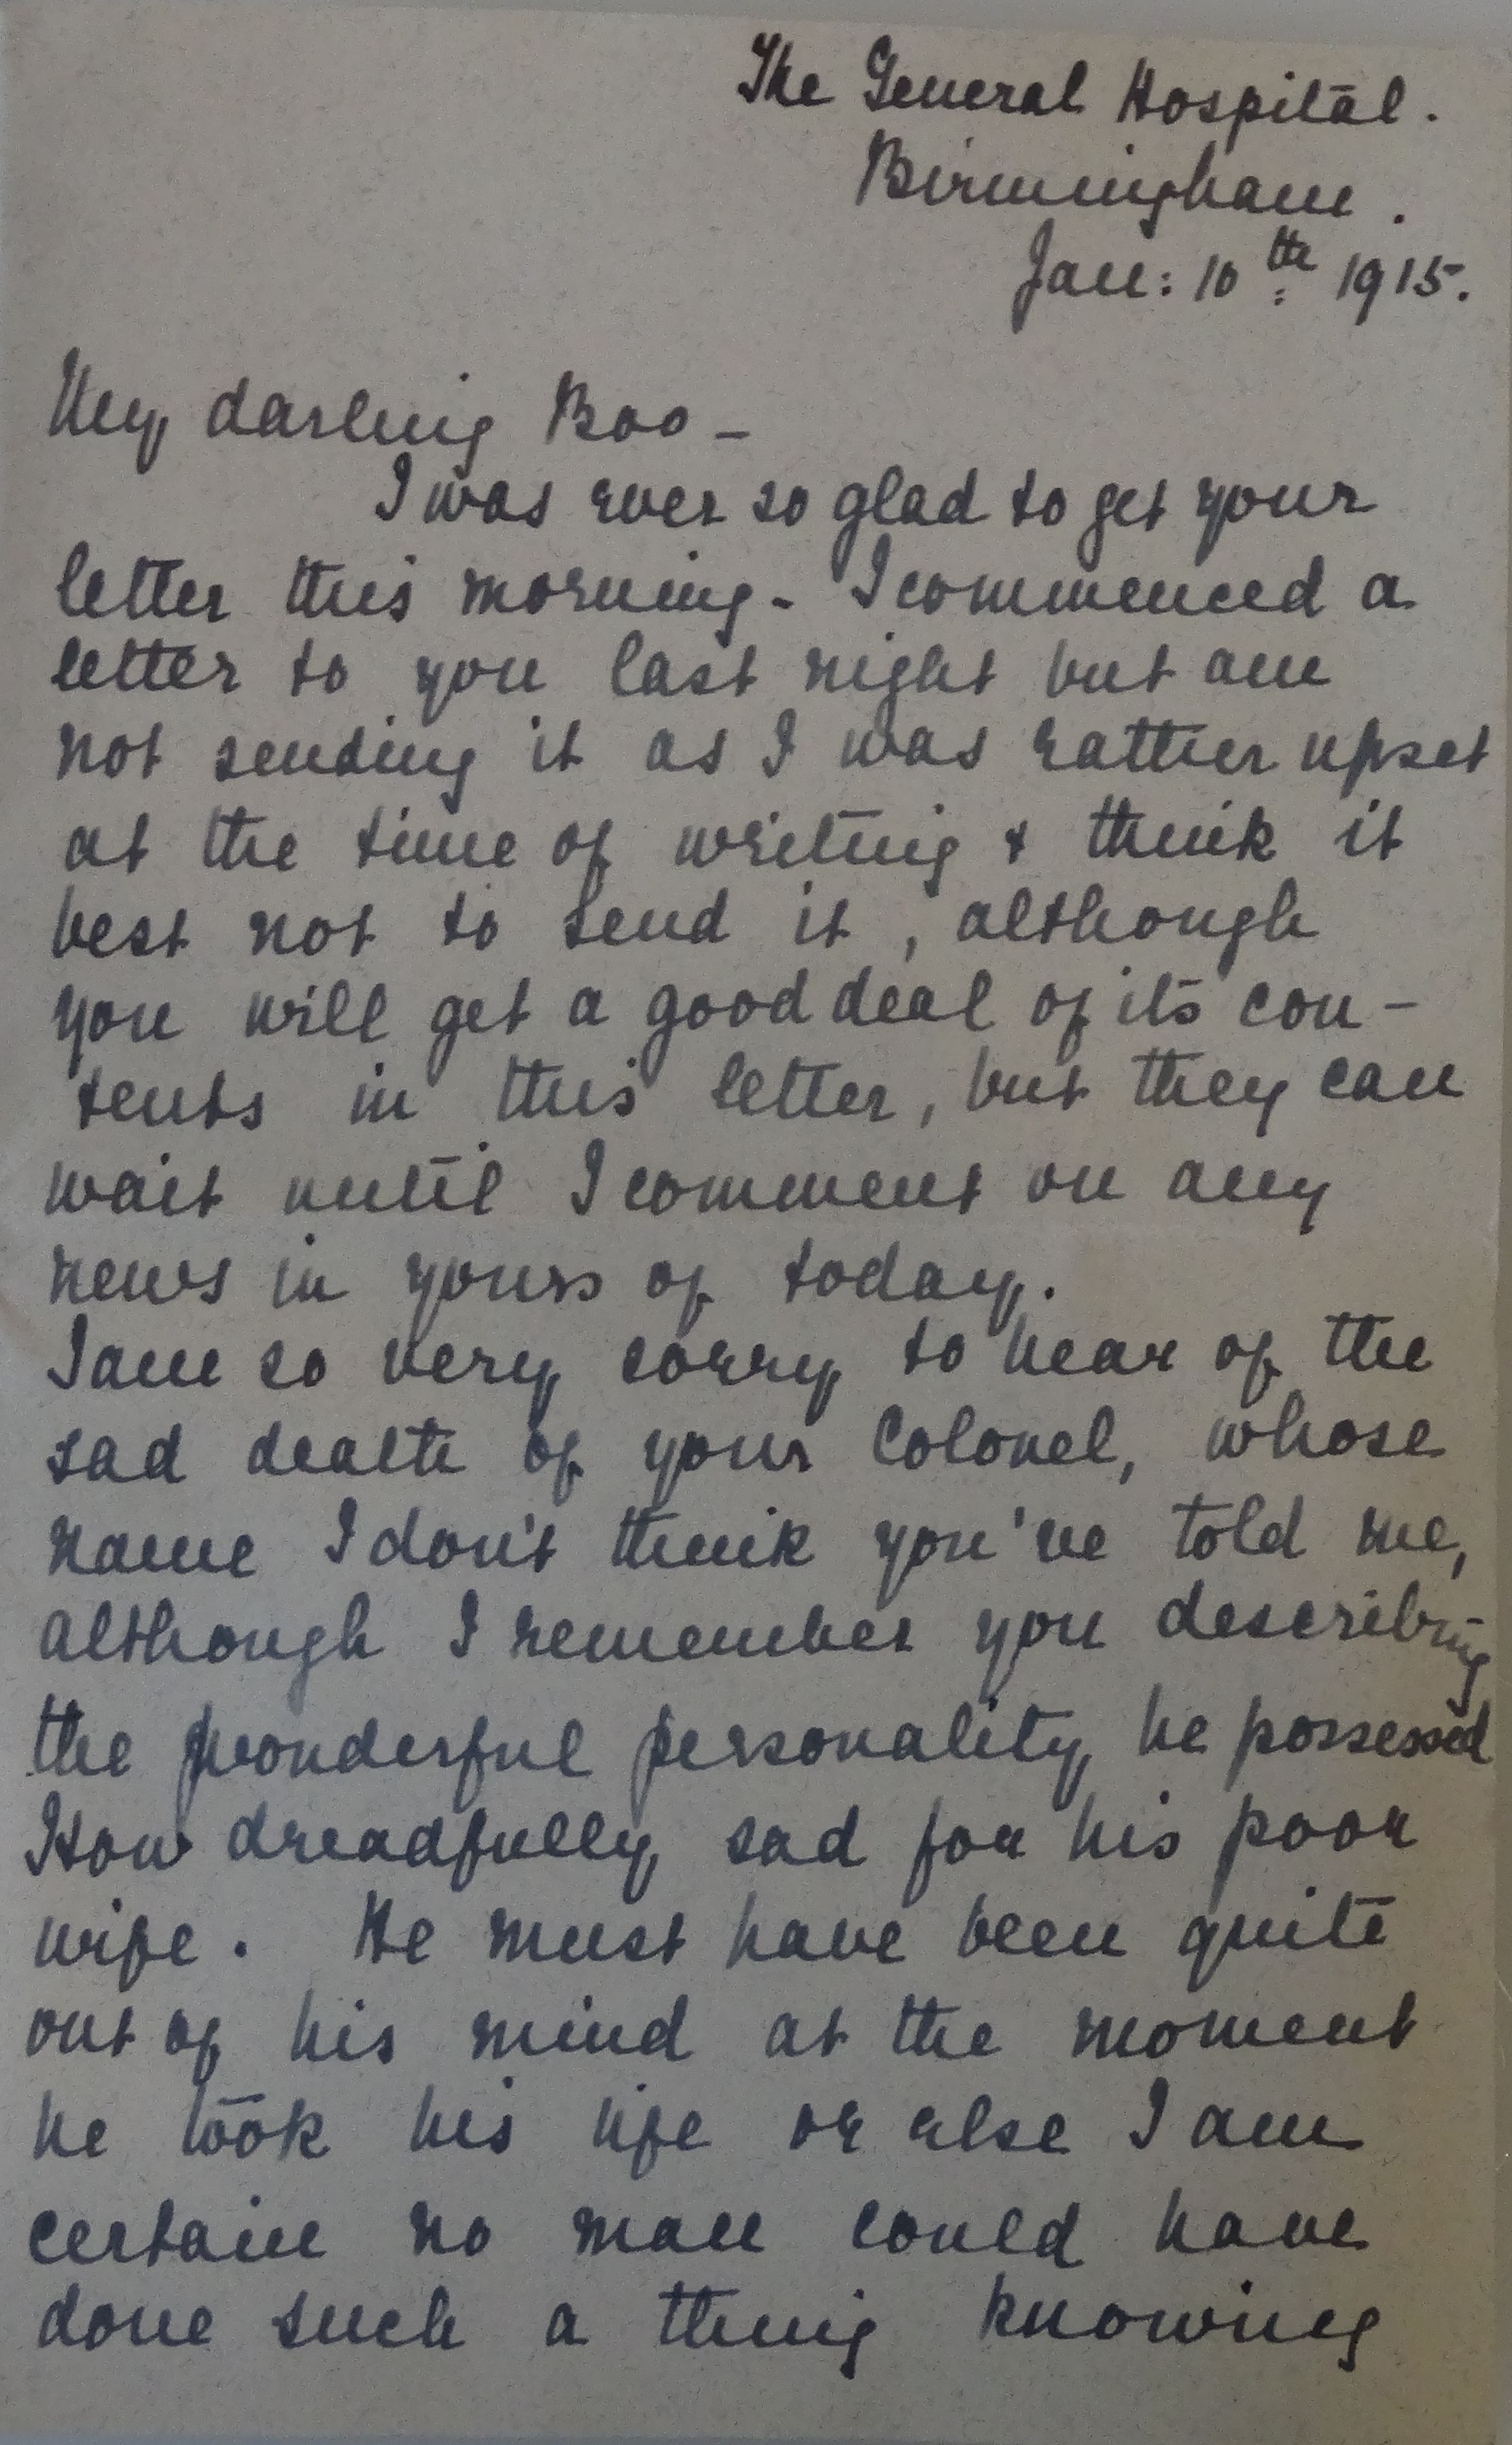 The General Hospital.
Birmingham.
Jan: 10th 1915.
My darling Boo –
I was ever so glad to get your
letter this morning. I commenced a
letter to you last night but am
not sending it as I was rather upset
at the time of writing & think it
best not to send it, although
you will get a good deal of its con-
tents in this letter, but they can
wait until I comment on any
news in yours of today.
I am so very sorry to hear of the
sad death of your Colonel, whose
name I don't think you've told me,
although I remember you describing
the wonderful personality he possessed
How dreadfully sad for his poor
wife. He must have been quite
out of his mind at the moment
he took his life or else I am
certain no man could have
done such a thing knowing